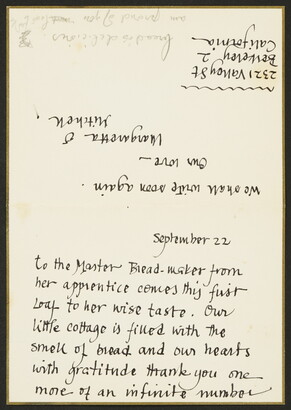 September 22
to the Master Bread-maker from
her apprentice comes this first
loaf to her wise taste. Our
little cottage is filled with the
smell of bread and our hearts
with gratitude thank you one
more of an infinite number
We shall write soon again.
Our love—
Margaretta &
Mitchell.
2321 Valley St
Berkeley 2
California
bread is delicious
am proud of you